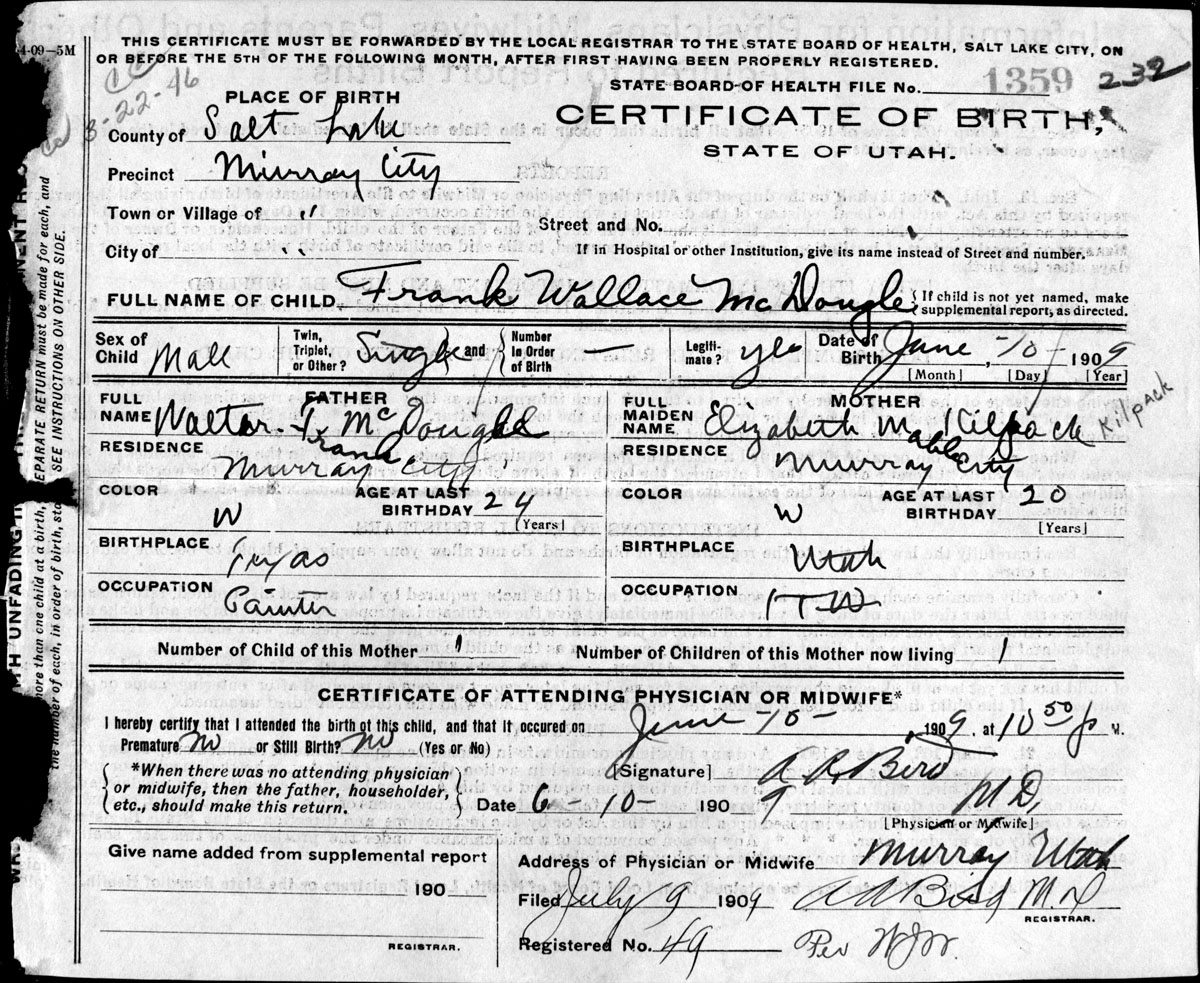 4-09-5M
THIS CERTIFICATE MUST BE FORWARDED BY THE LOCAL REGISTRAR TO THE STATE BOARD OF HEALTH, SALT LAKE CITY, ON
OR BEFORE THE 5TH OF THE FOLLOWING MONTH, AFTER FIRST HAVING BEEN PROPERLY REGISTERED.
3-22-46
STATE BOARD OF HEALTH FILE No. 1359 232
PLACE OF BIRTH
CERTIFICATE OF BIRTH,
STATE OF UTAH.
County of Salt Lake
Precinct Murray City
Town or Village of "
Street and No.
City of "
If in Hospital or other Institution, give its name instead of Street and number.
FULL NAME OF CHILD Frank Wallace McDougle { If child is not yet named, make
supplemental report, as directed.
Sex of Child Male Twin, Triplet, or Other? Single and Number in Order of Birth — Legiti- mate? yes Date of Birth June -10- 1909
[Month] [Day] [Year]
FATHER
FULL NAME Walter F McDougle
Frank
RESIDENCE Murray City
COLOR W AGE AT LAST BIRTHDAY 24
[Years]
BIRTHPLACE Texas
OCCUPATION Painter
MOTHER
FULL MAIDEN NAME Elizabeth M Kilpack Kilpack
Mable
RESIDENCE Murray City
COLOR W AGE AT LAST BIRTHDAY 20
[Years]
BIRTHPLACE Utah
OCCUPATION
Number of Child of this Mother 1 Number of Children of this Mother now living 1
CERTIFICATE OF ATTENDING PHYSICIAN OR MIDWIFE*
I hereby certify that I attended the birth of this child, and that it occured on June -10- 1909, at 10 50 P M.
Premature No or Still Birth? No (Yes or No)
*When there was no attending physician
or midwife, then the father, householder,
etc., should make this return.
[Signature] A. R. Bird
Date 6-10- 1909 M D,
[Physician or Midwife]
Give name added from supplemental report
190
REGISTRAR.
Address of Physician or Midwife Murray Utah
Filed July 9 1909 Bird M.D
REGISTRAR.
Registered No. 49 Per
EPARATE RETURN must be made for each, and
SEE INSTRUCTIONS ON OTHER SIDE.
more than one child at a birth,
the number of each, in order of birth,
TH UNFADING IN